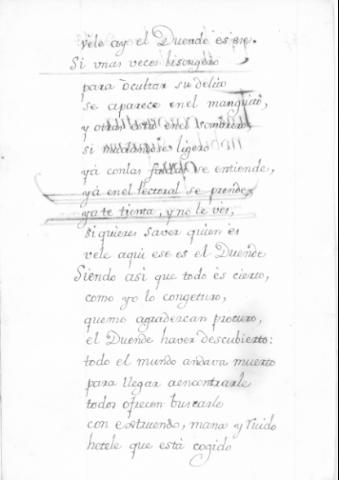 vele ay el Duende es ese.
Si unas veces lisongero
para ocultar su delito
se aparece en el manguito,
y otras está en el sombrero,
si mudandose ligero
yà con las faldas se entiende,
yà en el Pectoral se prende,
ya te tienta, y no le ves,
si quieres saver quien ès
vele aqui ese es el Duende
Siendo asi que todo ès cierto,
como yo lo congeturo,
que me agradezcan procuro,
el Duende haver descubierto:
todo el mundo andava muerto
para llegar a encontrarle
todos ofrecen buscarle
con estruendo, mana y ruido
hotele que està cogido